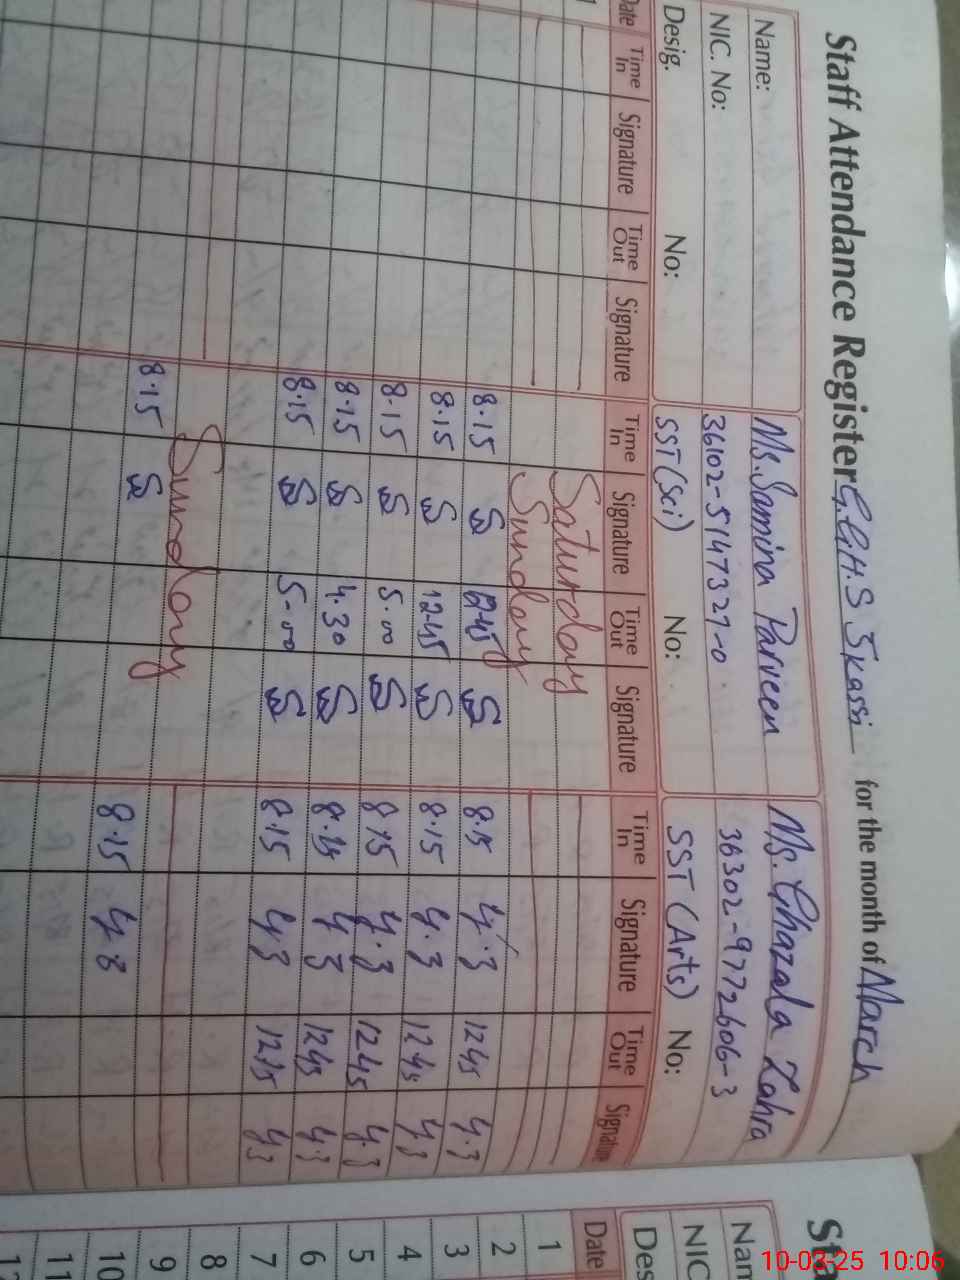 Staff Attendance Register G.G.H.S 5 kassi for the month of March
Name: Ms. Samina Parveen Ms. Ghazala Zahra
NIC. No: 36102-5147327-0 36302-9772606-3
Desig. No: SST (Sci) No: SST (Arts) No:
Date Time In Signature Time Out Signature Time In Signature Time Out Signature Time In Signature Time Out Signature
Saturday
Sunday
8.15 12.45 8.15 1245
8.15 1245 8.15 1245
8.15 5.00 8.15 1245
8.15 4.30 8.15 1245
8.15 5.00 8.15 1245
Sunday
8.15
8.15
Sta
Nam
NIC
Des
Date
1
2
3
4
5
6
7
8
9
10
11
12
10-03-25 10:06